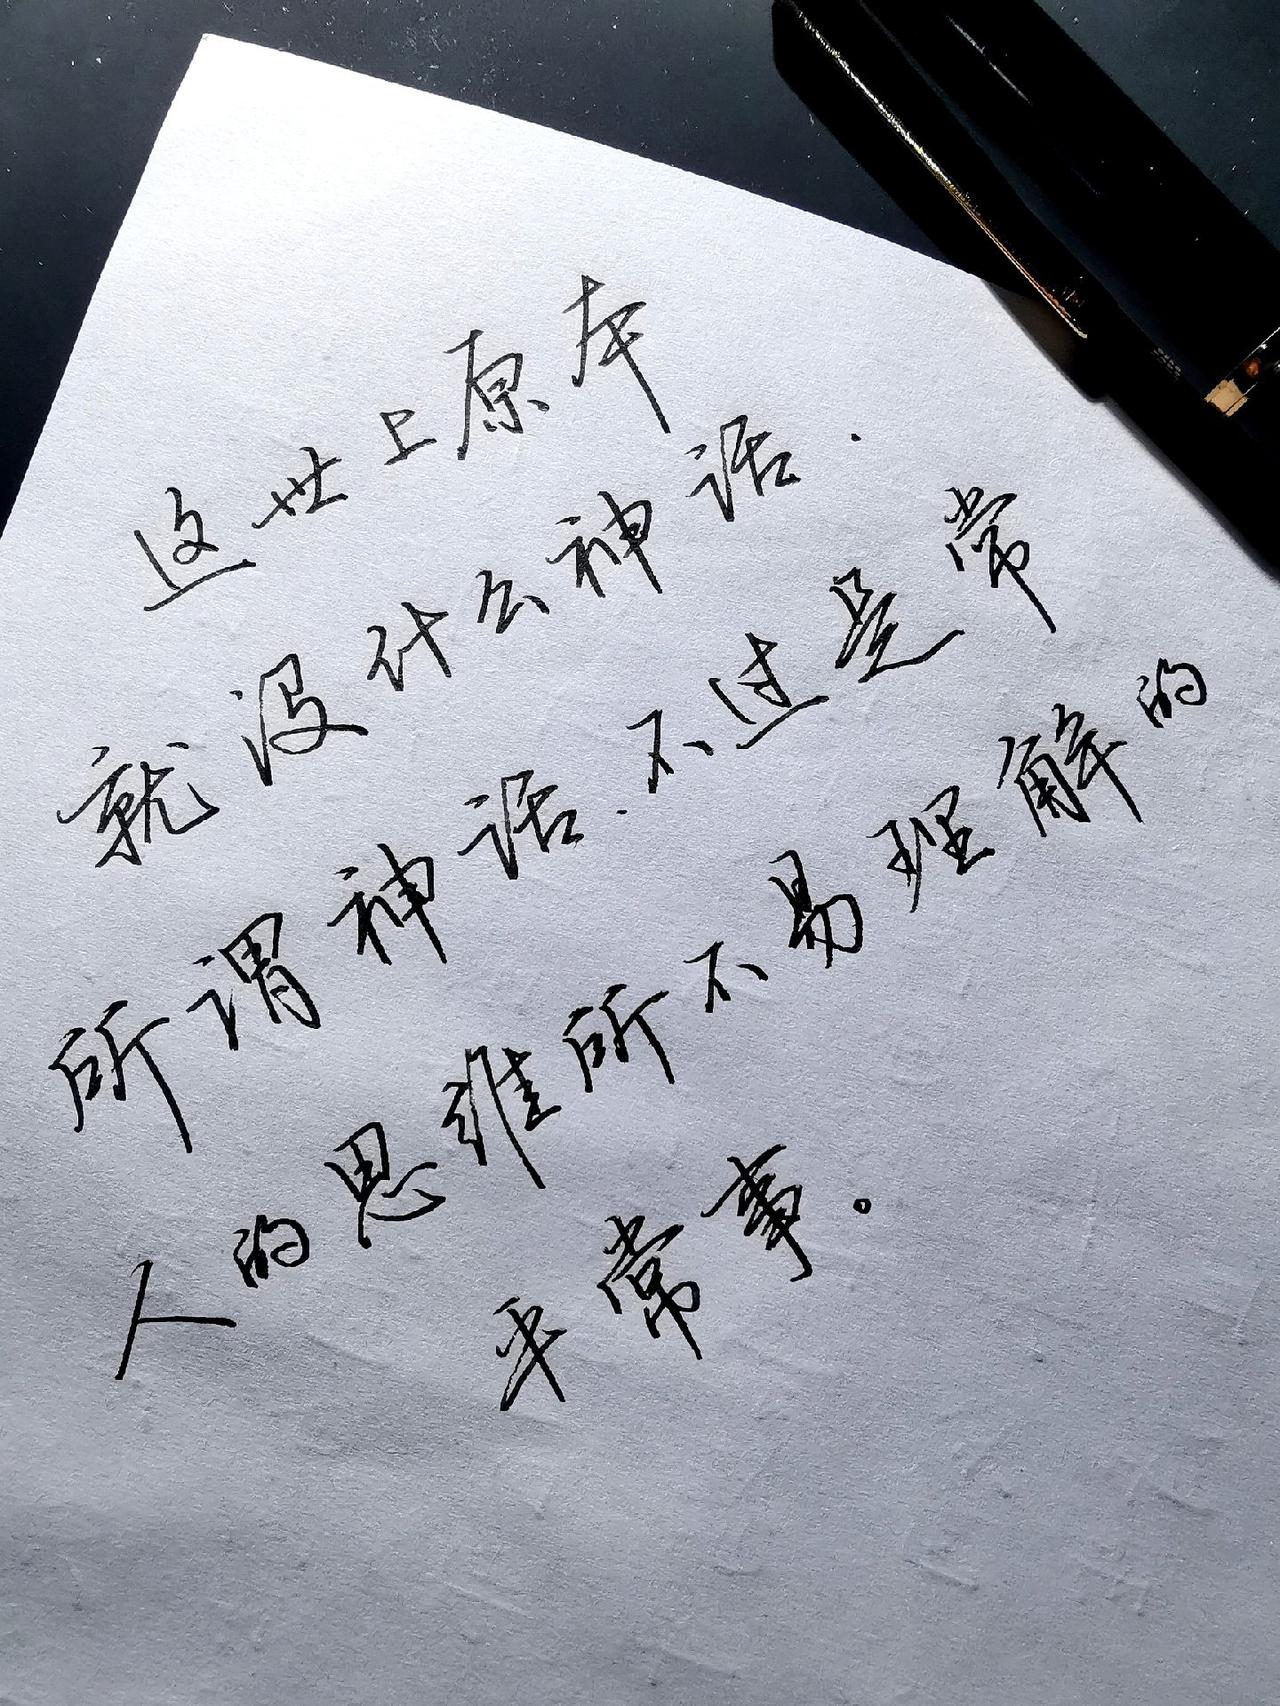 这世上原本
就没什么神话.
所谓神话.不过是常
人的思维所不易理解的
平常事。